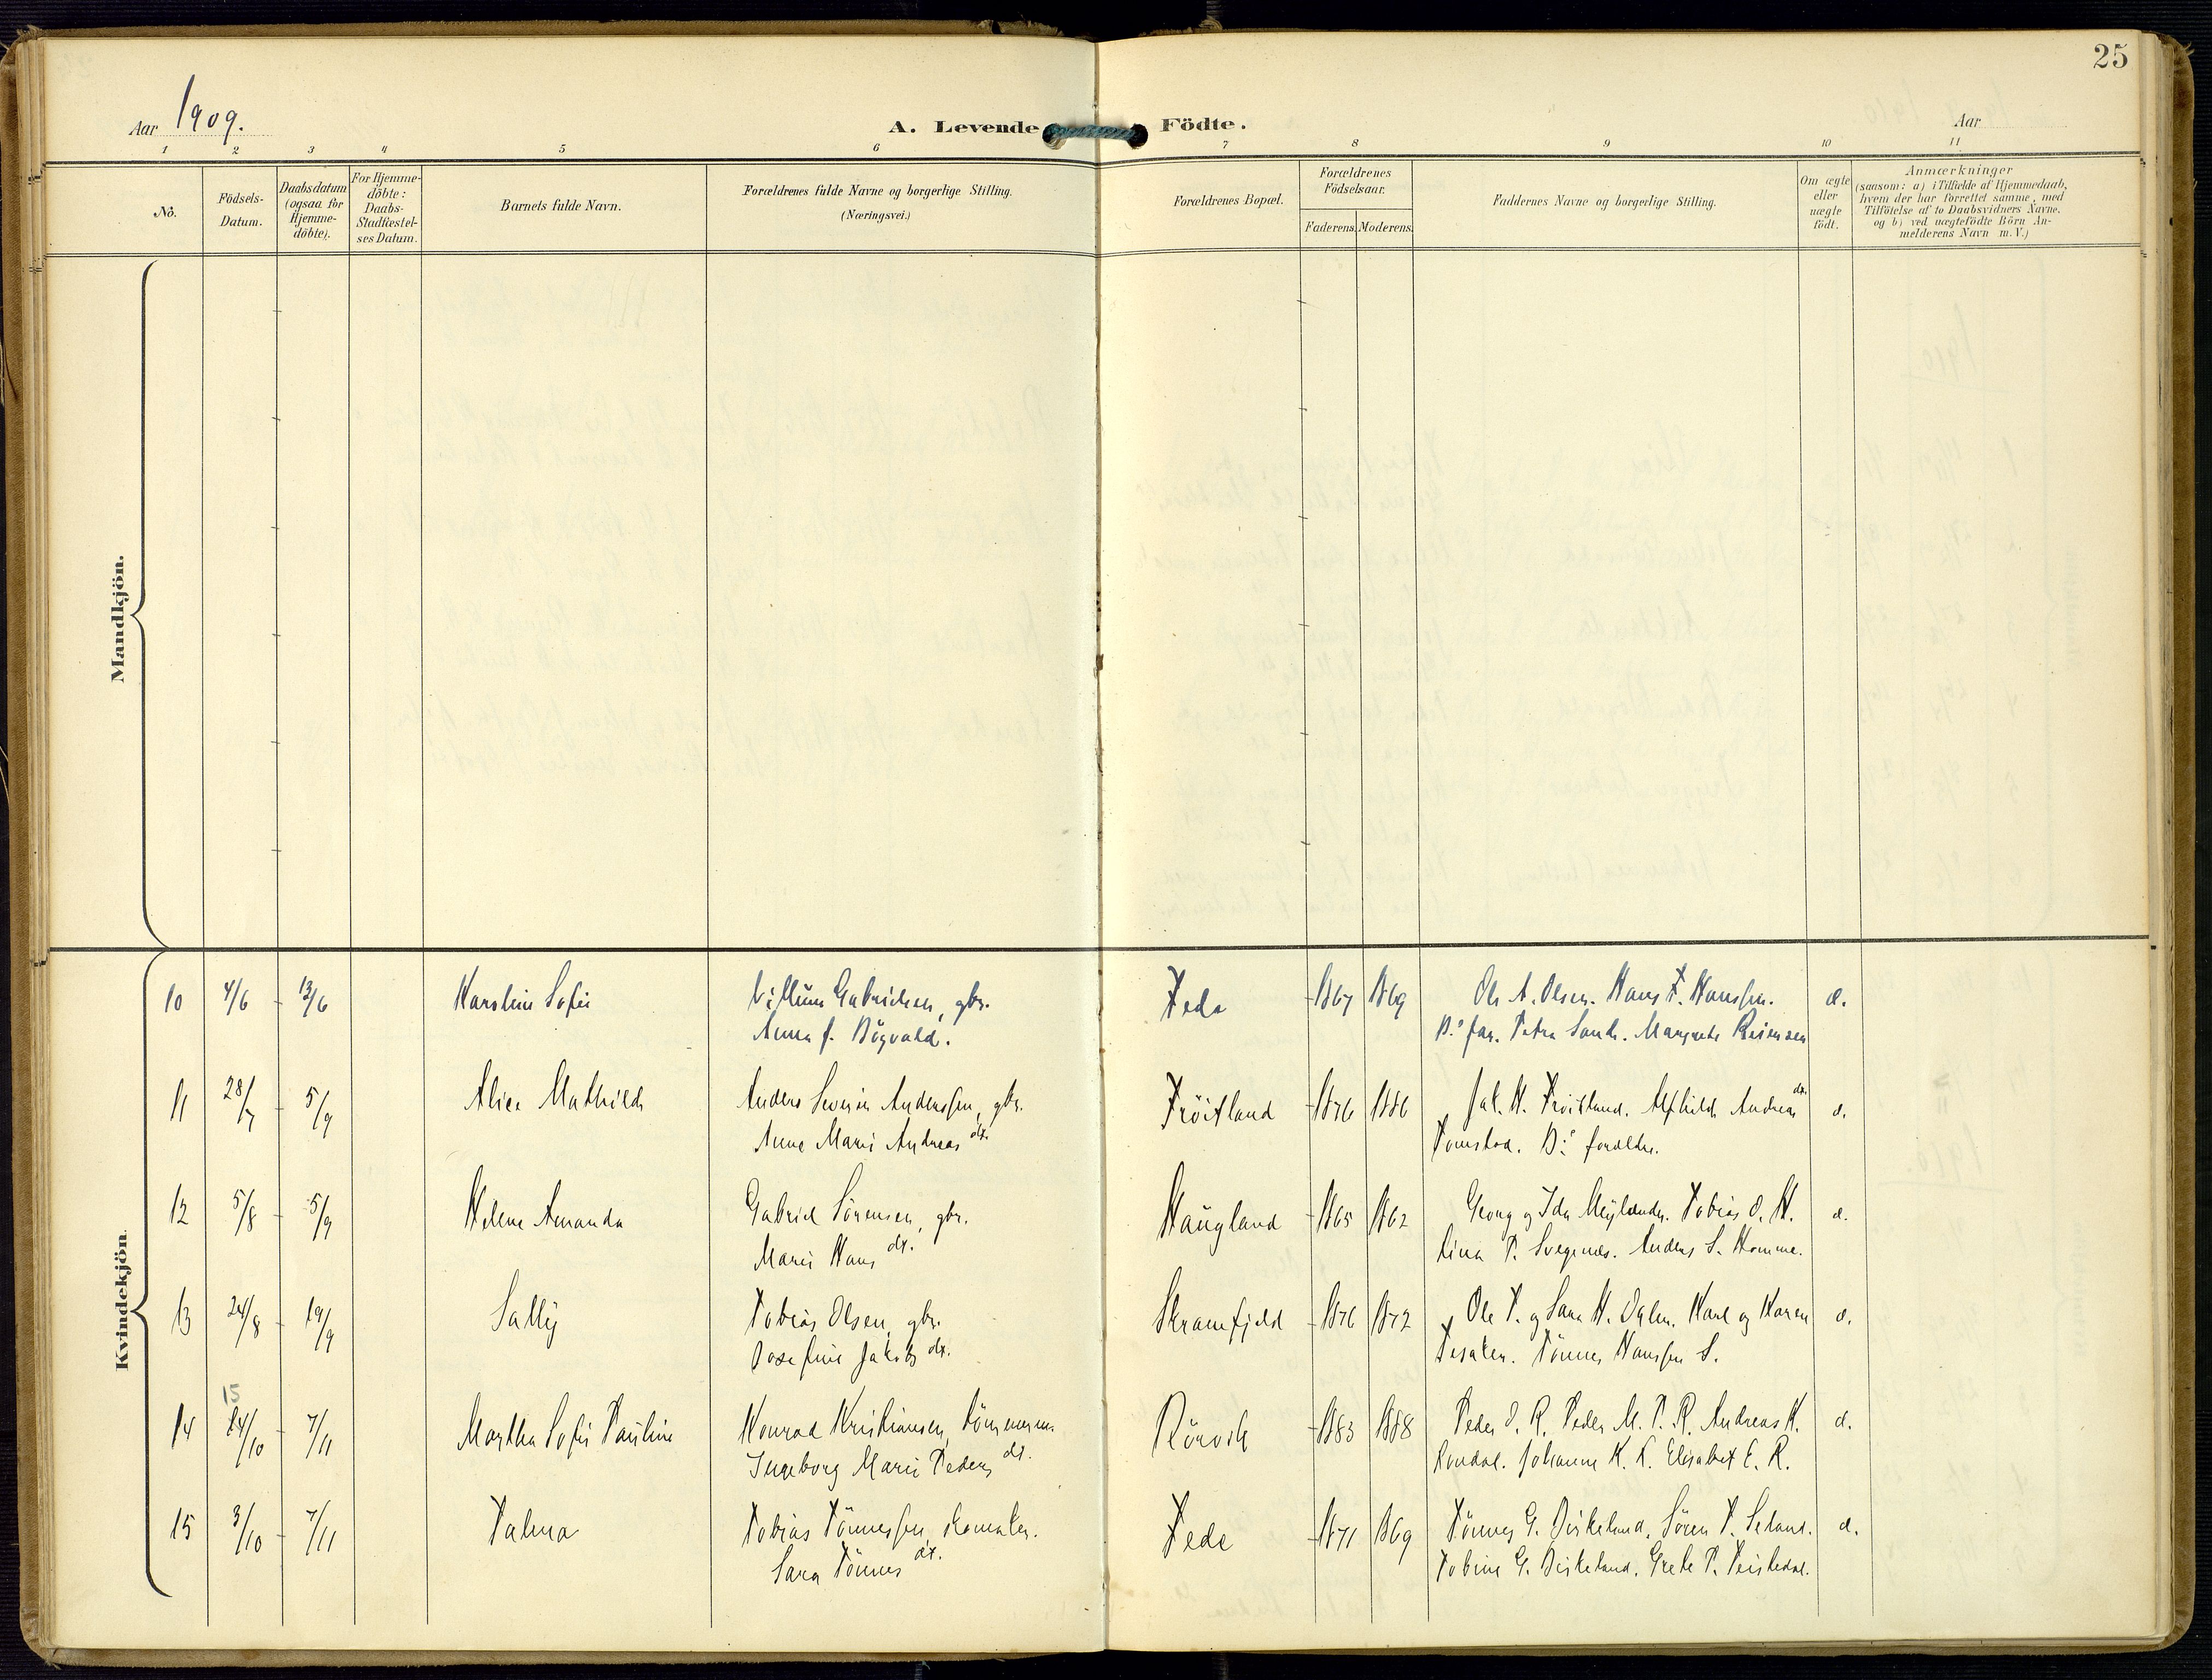 25
Aar 1909.
A. Levende Födte.
Aar
1 2 3 4 5 6 7 8 9 10 11
No.
Födsels-
Datum.
Daabsdatum
(ogsaa for
Hjemme-
döbte).
For Hjemme-
döbte:
Daabs-
Stadfæstel-
ses Datum.
Barnets fulde Navn.
Forældrenes fulde Navne og borgerlige Stilling.
(Næringsvei.)
Forældrenes Bopæl.
Forældrenes
Födselsaar.
Faderens. Moderens.
Faddernes Navne og borgerlige Stilling.
Om ægte
eller
uægte
födt.
Anmærkninger
(saasom: a) i Tilfælde af Hjemmedaab,
hvem der har forrettet samme, med
Tilföielse af to Daabsvidners Navne,
og b) ved uægtefödte Börn An-
melderens Navn m. V.)
Mandkjön.
Kvindekjön.
10 4/6 13/6 Karoline Sofie Villum Gabrielsen, gbr. Feda 1867 1869 Ole A. Olsen. Hans F. Hanssen. æ.
Anna J. Bögvald. B.s far. Petra Sande. Margrete Reiersen
11 28/7 5/9 Alice Mathilde Anders Severin Anderssen, gbr. Fröitland 1876 1886 Jak. H. Fröitland. Alfhilde Andreas dr. æ.
Anne Marie Andreas dr. Tomstad. B.s forældre.
12 5/8 5/9 Helene Amanda Gabriel Sörensen, gbr. Haugland 1865 1862 Georg og Ida Meylænder. Tobias O. H. æ.
Marie Hans dr. Lina P. Svegenes. Anders S. Homme.
13 24/8 19/9 Sally Tobias Olsen, gbr. Skranefjeld 1876 1872 Ole T. og Sara H. Oplen. Karl og Karen æ.
Josefine Jakobs dr. Tesaker. Tönnes Hanssen S.
15
14 14/10 7/11 Martha Sofie Pauline Konrad Kristiansen, tömmerm. Rörvik 1883 1888 Peder O. R. Peder M. P. R. Andreas K. æ.
Ingeborg Marie Peders dr. Rondal. Johanne K. R. Elisabet E. R.
15 3/10 7/11 Talma Tobias Tönnessen, skomaker. Feda 1871 1869 Tönnes G. Birkeland. Sören T. Seland. æ.
Sara Tönnes dr. Tobine G. Birkeland. Grete P. Teistedal.